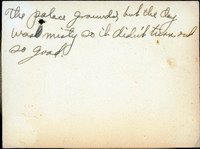 The palace grounds, but the day
was misty so it didn't turn out
so good.